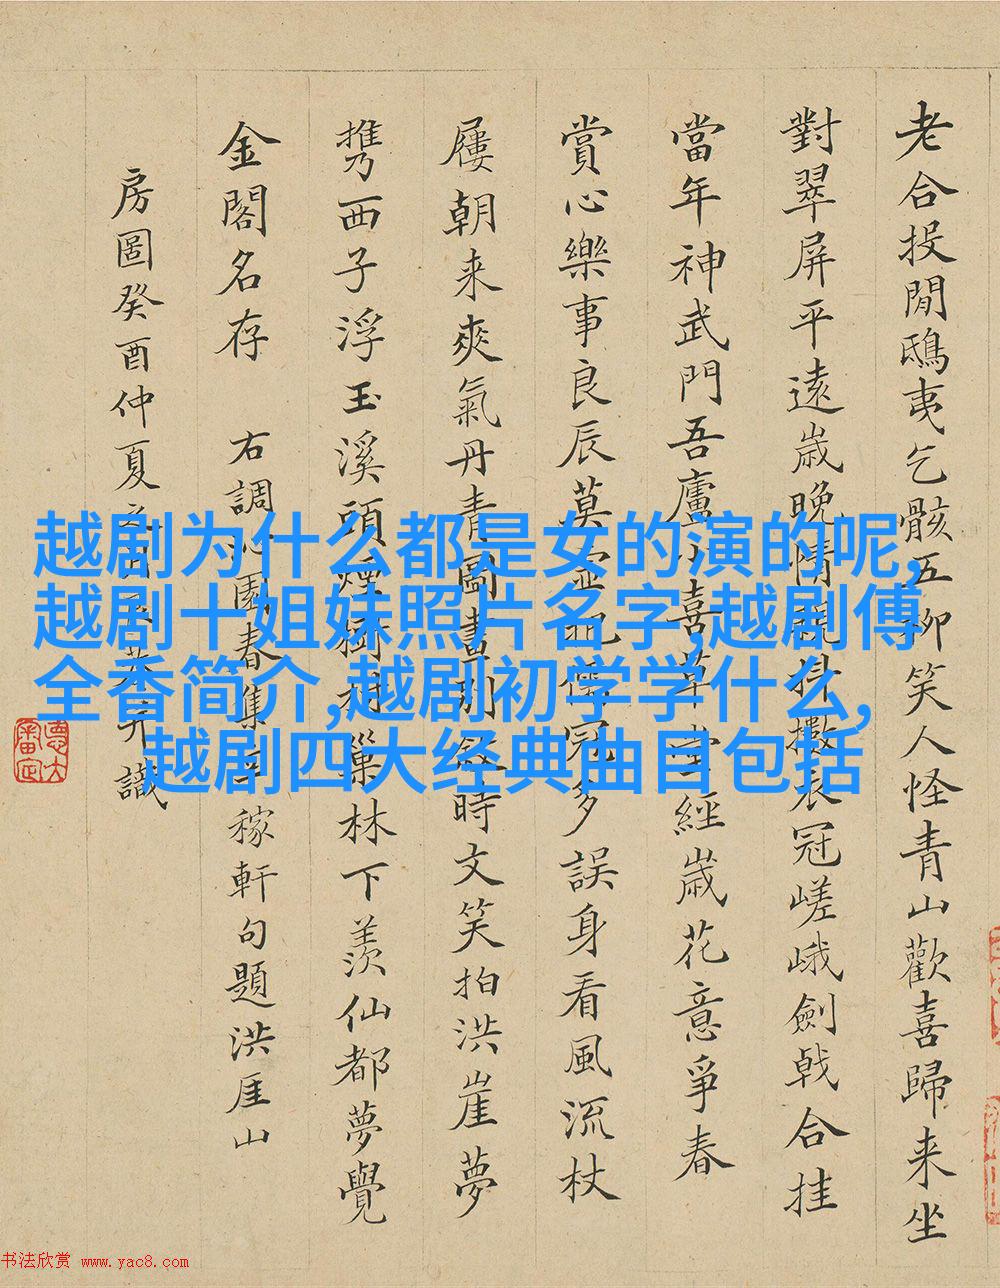 越剧为什么都是女的演的呢,
越剧十姐妹照片名字,越剧傅
全香简介,越剧初学学什么,
,越剧四大经典曲目包括
老合投閒鴟夷乞骸五柳笑人怪青山歡喜歸来坐
對翠屏平遠歳晚情衣冠嵯峨劍戟合挂
當年神武門吾廬小喜草堂經歳花意爭春
賞心樂事良辰莫冠多誤身看風流杖
屨朝来爽氣丹青圖畫時文笑拍洪崖夢
携西子浮玉溪頭煙樹巢林下羡仙都夢覺
金閣名存 右調沁園春集稼軒句題洪厓山
房圖癸酉仲夏之識
书法欣赏 www.yac8.com